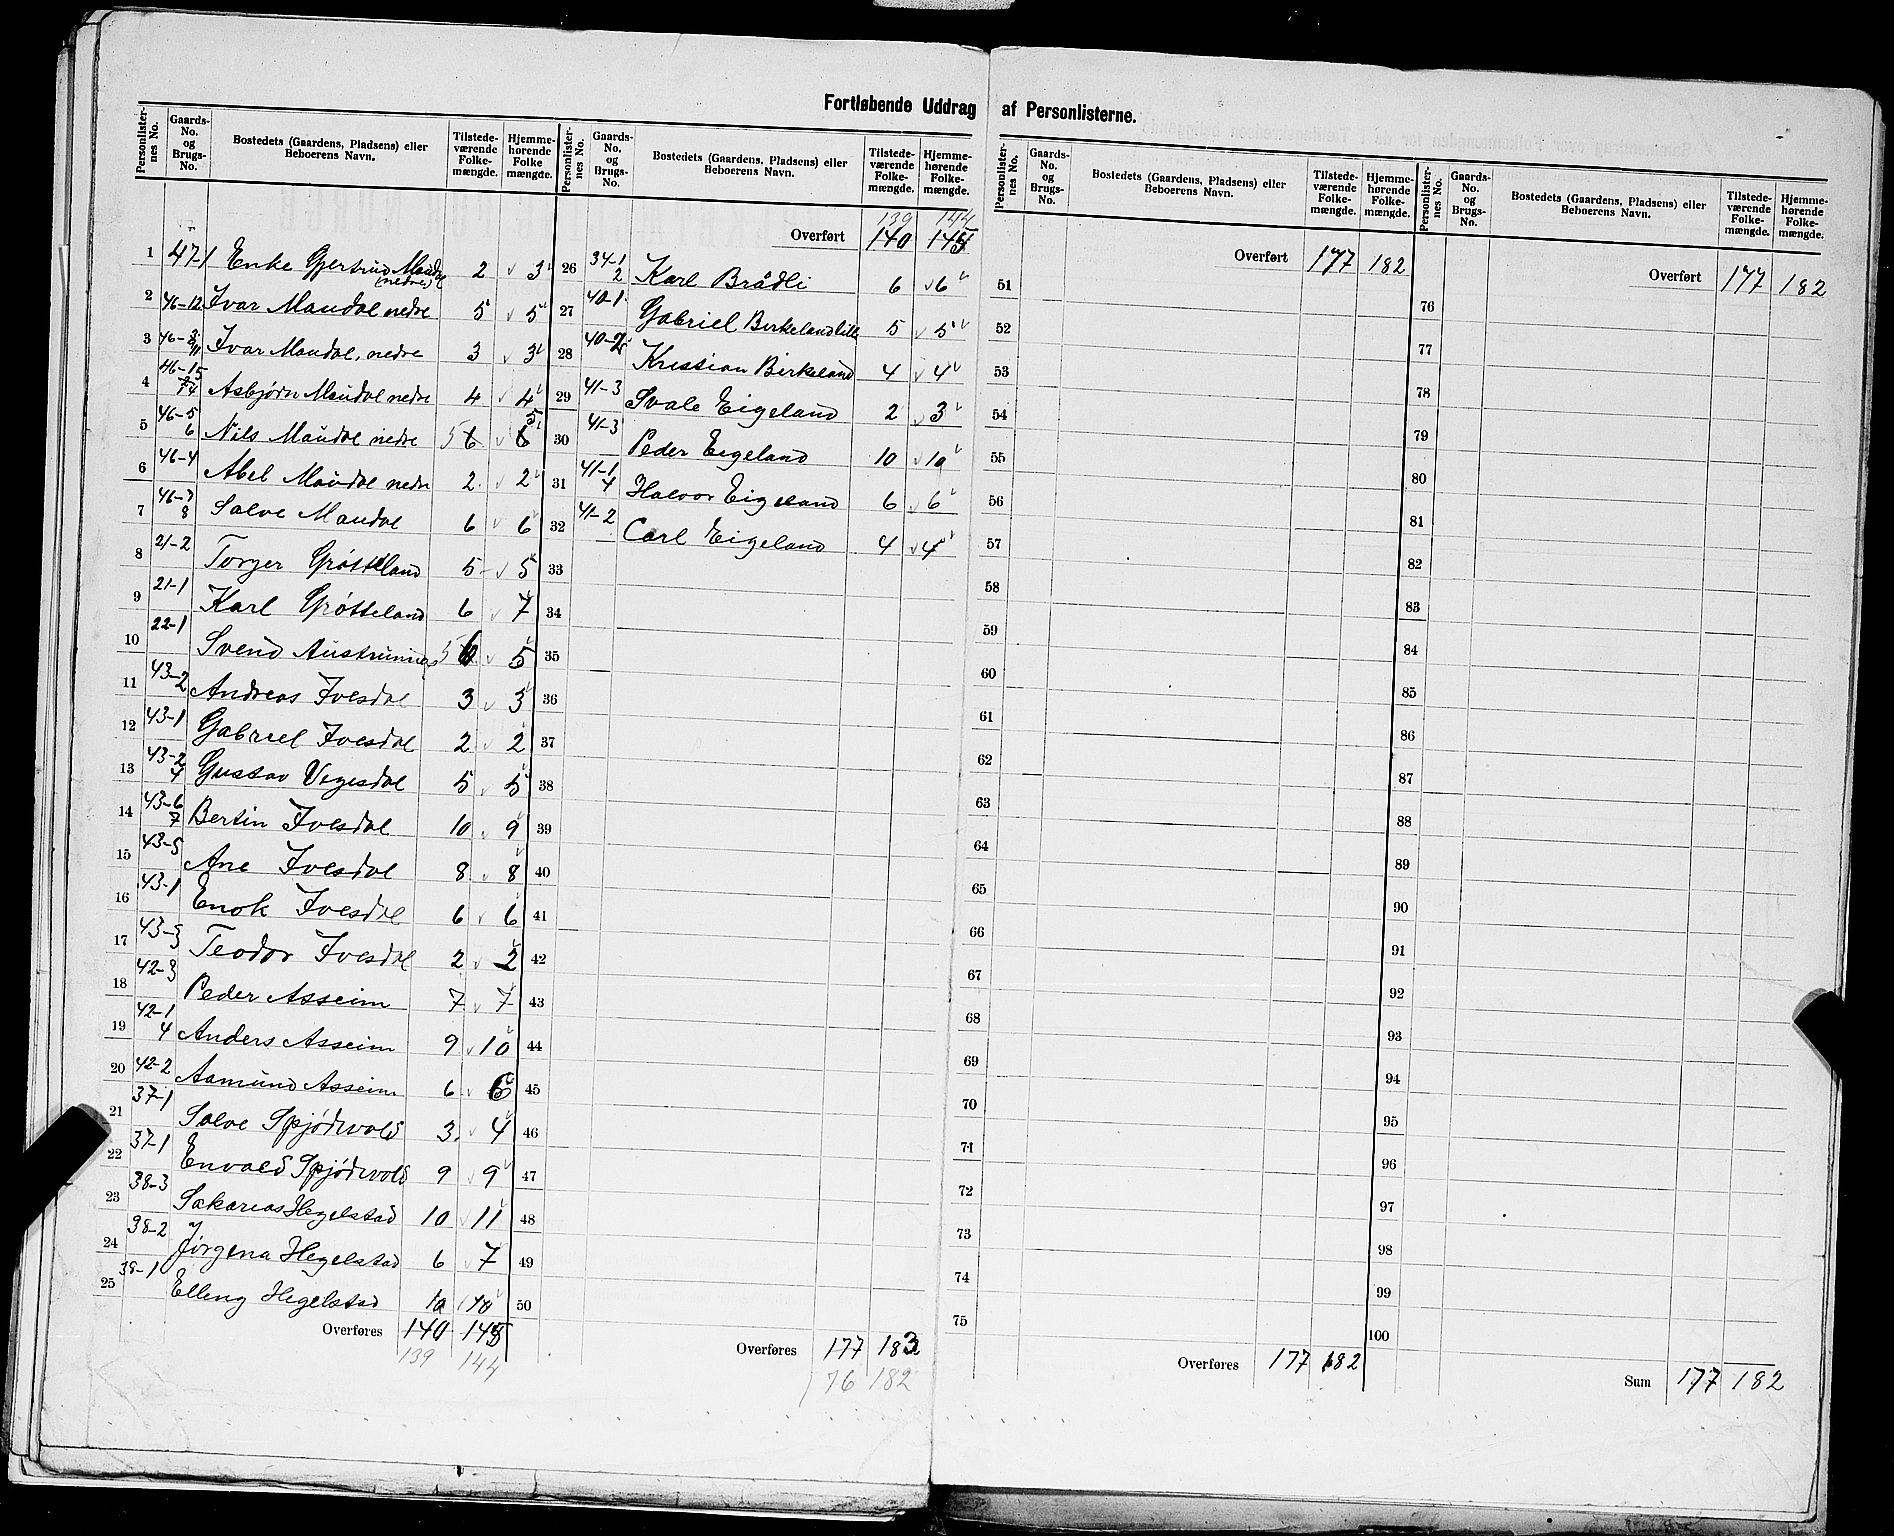 Fortløbende Uddrag af Personlisterne.
Personlister-nes No. | Gaards-No. og Brugs-No. | Bostedets (Gaardens, Pladsens) eller Beboerens Navn. | Tilstede-værende Folke-mængde. | Hjemme-hørende Folke mængde.
1 47-1 Enke Gertrud Maudal (nedre) 2 3
2 46-12 Ivar Maudal nedre 5 5
3 46- 11 Ivar Maudal, nedre 3 3
4 46-15 14 Asbjørn Maudal nedre 4 4
5 46-5 6 Nils Maudal nedre 5 6 6 5
6 46-4 Abel Maudal nedre 2 2
7 46-7 8 Salve Maudal 6 6
8 21-2 Torger Grøtteland 5 5
9 21-1 Karl Grøtteland 6 7
10 22-1 Svend Austrumnes 5 6 5
11 43-2 Andreas Ivesdal 3 3
12 43-1 Gabriel Ivesdal 2 2
13 43-2 4 Gustav Vegesdal 5 5
14 43-6 7 Bertin Ivesdal 10 9
15 43-5 Ane Ivesdal 8 8
16 43-1 Enok Ivesdal 6 6
17 43-3 Teodor Ivesdal 2 2
18 42-3 Peder Asseim 7 7
19 42-1 4 Anders Asseim 9 10
20 42-2 Aamund Asseim 6 6
21 37-1 Salve Spjödevold 3 4
22 37-1 Envald Spjödevold 9 9
23 38-3 Sakarias Hegelstad 10 11
24 38-2 Jørgena Hegelstad 6 7
25 38-1 Elleng Hegelstad 10 10
Overføres 140 145
139 144
Personlister-nes No. | Gaards-No. og Brugs-No. | Bostedets (Gaardens, Pladsens) eller Beboerens Navn. | Tilstede-værende Folke-mængde. | Hjemme-hørende Folke-mængde.
139 144
Overført 140 145
26 34-1 2 Karl Brådli 6 6
27 40-1 Gabriel Birkelandlille 5 5
28 40-2 Kristian Birkeland 4 4
29 41-3 Svale Eigeland 2 3
30 41-3 Peder Eigeland 10 10
31 41-1 4 Halvor Eigeland 6 6
32 41-2 Carl Eigeland 4 4
33
34
35
36
37
38
39
40
41
42
43
44
45
46
47
48
49
50
Overføres 177 183
76 182
Personlister-nes No. | Gaards-No. og Brugs-No. | Bostedets (Gaardens, Pladsens) eller Beboerens Navn. | Tilstede-værende Folke-mængde. | Hjemme-hørende Folke-mængde.
Overført 177 182
51
52
53
54
55
56
57
58
59
60
61
62
63
64
65
66
67
68
69
70
71
72
73
74
75
Overføres 177 182
Personlister-nes No. | Gaards-No. og Brugs-No. | Bostedets (Gaardens, Pladsens) eller Beboerens Navn. | Tilstede-værende Folke-mængde. | Hjemme-hørende Folke-mængde.
Overført 177 182
76
77
78
79
80
81
82
83
84
85
86
87
88
89
90
91
92
93
94
95
96
97
98
99
100
Sum 177 182